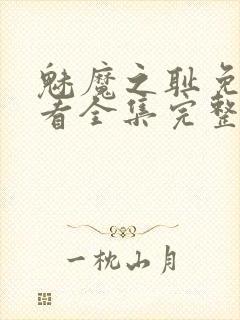 魅魔之耻免
看全集完整
一枕山月